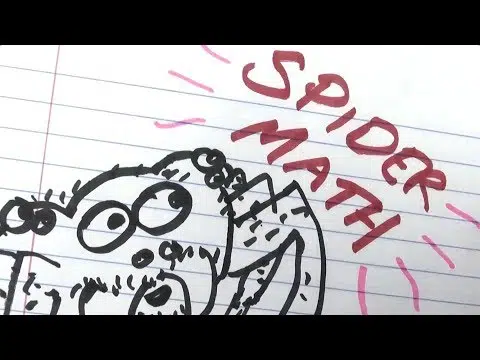 SPIDER
MATH